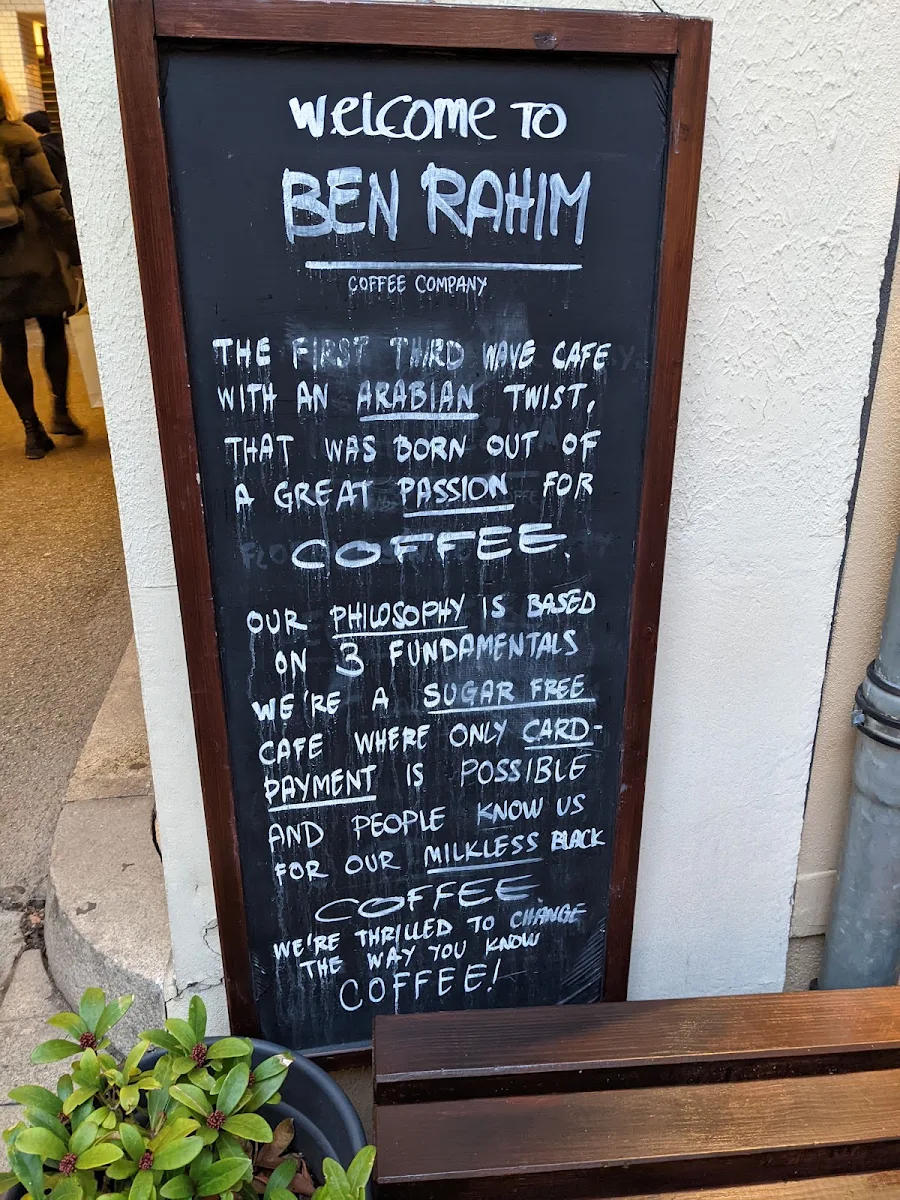 Welcome to
BEN RAHIM
COFFEE COMPANY
THE FIRST THIRD WAVE CAFE
WITH AN ARABIAN TWIST,
THAT WAS BORN OUT OF
A GREAT PASSION FOR
COFFEE.
OUR PHILOSOPHY IS BASED
ON 3 FUNDAMENTALS
WE'RE A SUGAR FREE
CAFE WHERE ONLY CARD-
PAYMENT IS POSSIBLE
AND PEOPLE KNOW US
FOR OUR MILKLESS BLACK
COFFEE
WE'RE THRILLED TO CHANGE
THE WAY YOU KNOW
COFFEE!